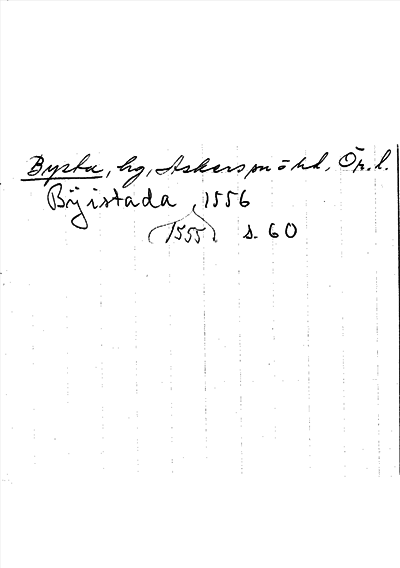 Bysta, hg, Askers sn o hd, Ör. l.
Bÿistada, 1556
(1555) s. 60